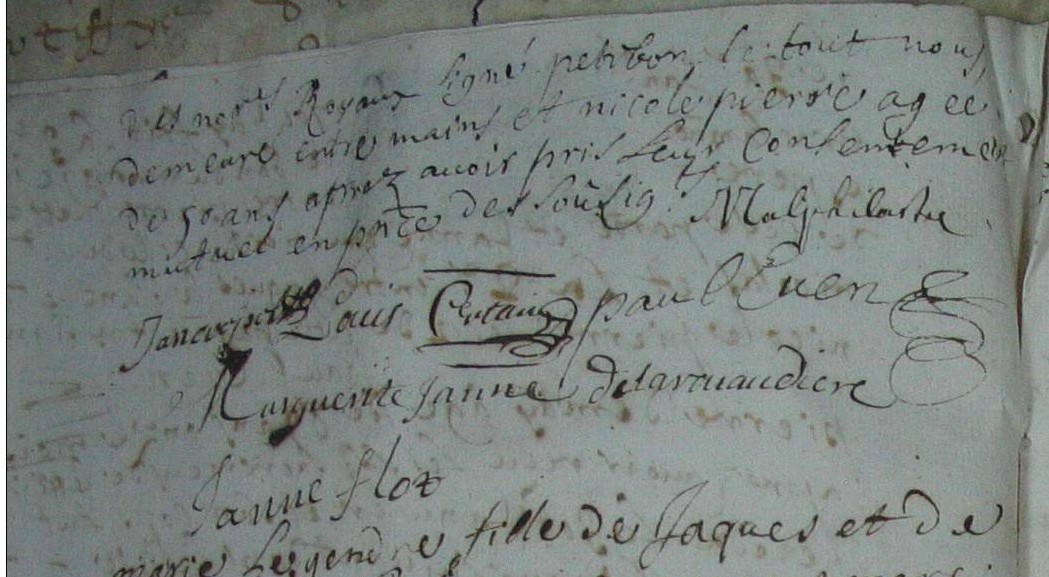 des nores Royaux signé petibon, le tout nous
demeuré entre mains et nicole pierre agee
de 50 ans apres avoir pris leurs consentemen
mutuel en pñce des soûsig
Louis Certain paul Euen
Marguerite Janne delarouaudiere
Janne flot
marie Legendre fille de Jaques et de